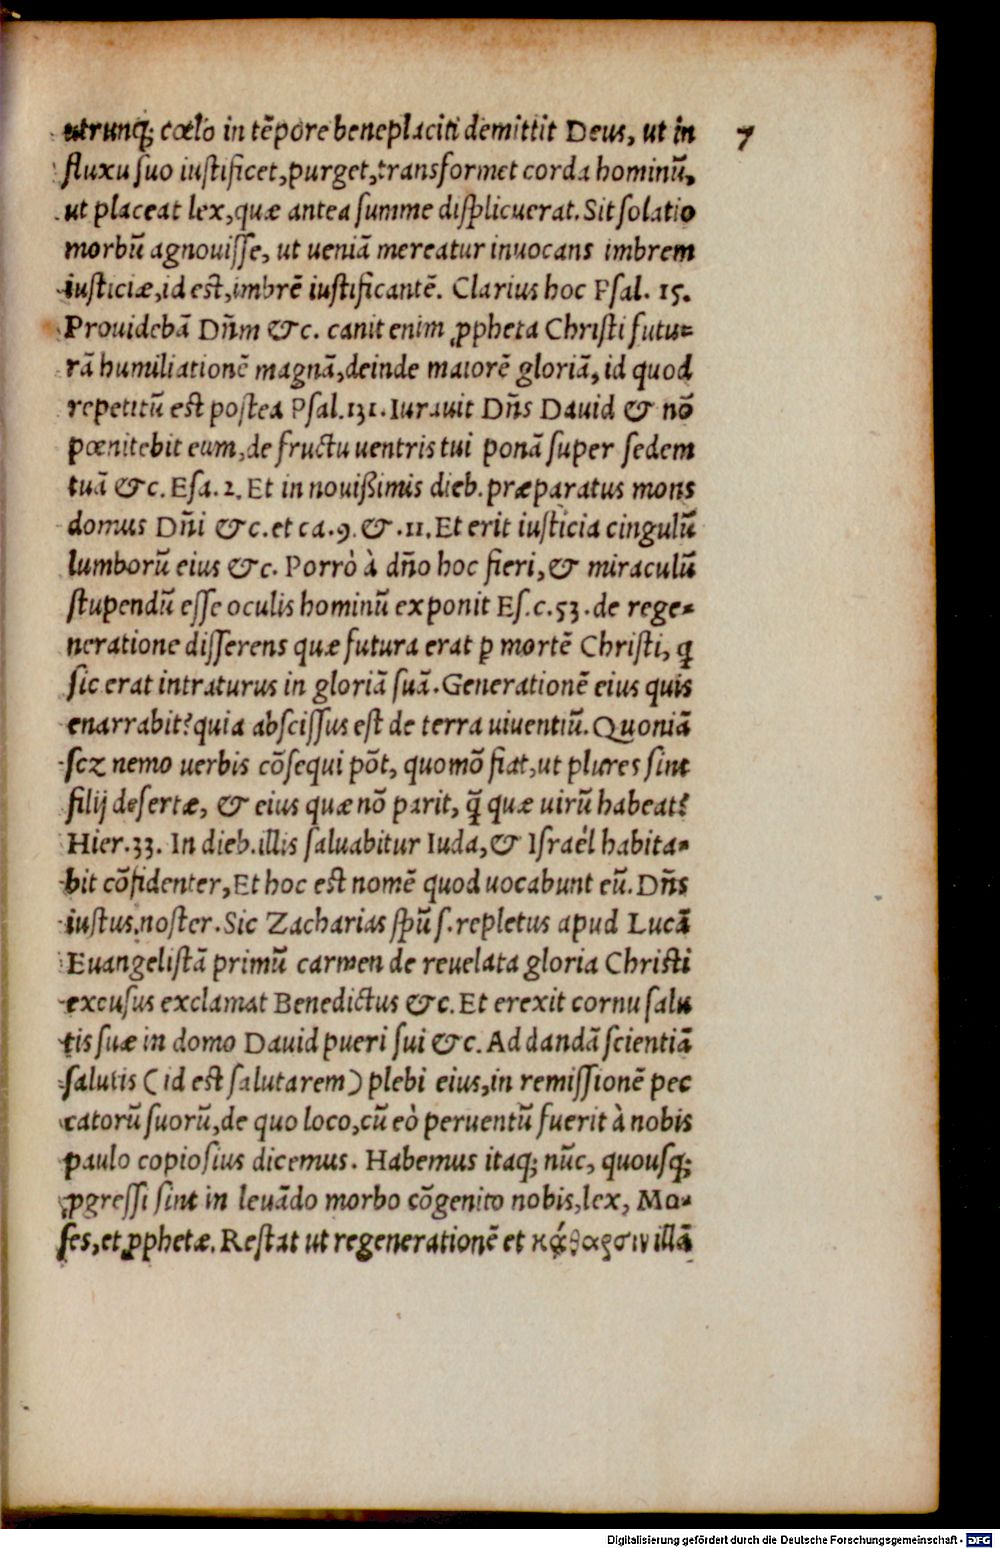 utrunq; cœlo in tẽpore beneplaciti demittit Deus, ut in 7
fluxu suo iustificet, purget, transformet corda hominũ,
ut placeat lex, quæ antea summe displicuerat. Sit solatio
morbũ agnouisse, ut ueniã mereatur inuocans imbrem
iusticiæ, id est, imbrẽ iustificantẽ. Clarius hoc Psal. 15.
Prouidebã Dñm &c. canit enim ꝓpheta Christi futu-
rã humiliationẽ magnã, deinde maiorẽ gloriã, id quod
repetitũ est postea Psal. 131. Iurauit Dñs Dauid & nõ
pœnitebit eum, de fructu uentris tui ponã super sedem
tuã &c. Esa. 2. Et in nouißimis dieb. præparatus mons
domus Dñi &c. et ca. 9. & .11. Et erit iusticia cingulũ
lumborũ eius &c. Porrò à dño hoc fieri, & miraculũ
stupendũ esse oculis hominũ exponit Es. c. 53. de rege-
neratione disserens quæ futura erat ꝑ mortẽ Christi, ꝗ
sic erat intraturus in gloriã suã. Generationẽ eius quis
enarrabit? quia abscissus est de terra uiuentiũ. Quoniã
scz nemo uerbis cõsequi põt, quomõ fiat, ut plures sint
filij desertæ, & eius quæ nõ parit, ꝗ̃ quæ uirũ habeat?
Hier. 33. In dieb. illis saluabitur Iuda, & Israël habita-
bit cõfidenter, Et hoc est nomẽ quod uocabunt eũ. Dñs
iustus, noster. Sic Zacharias spũ s. repletus apud Lucã
Euangelistã primũ carmen de reuelata gloria Christi
excusus exclamat Benedictus &c. Et erexit cornu salu
tis suæ in domo Dauid pueri sui &c. Ad dandã scientiã
salutis (id est salutarem) plebi eius, in remissionẽ pec
catorũ suorũ, de quo loco, cũ eò peruentũ fuerit à nobis
paulo copiosius dicemus. Habemus itaq; nũc, quousq;
ꝓgressi sint in leuãdo morbo cõgenito nobis, lex, Mo-
ses, et ꝓphetæ. Restat ut regenerationẽ et κάθαρσιν illã
Digitalisierung gefördert durch die Deutsche Forschungsgemeinschaft - DFG